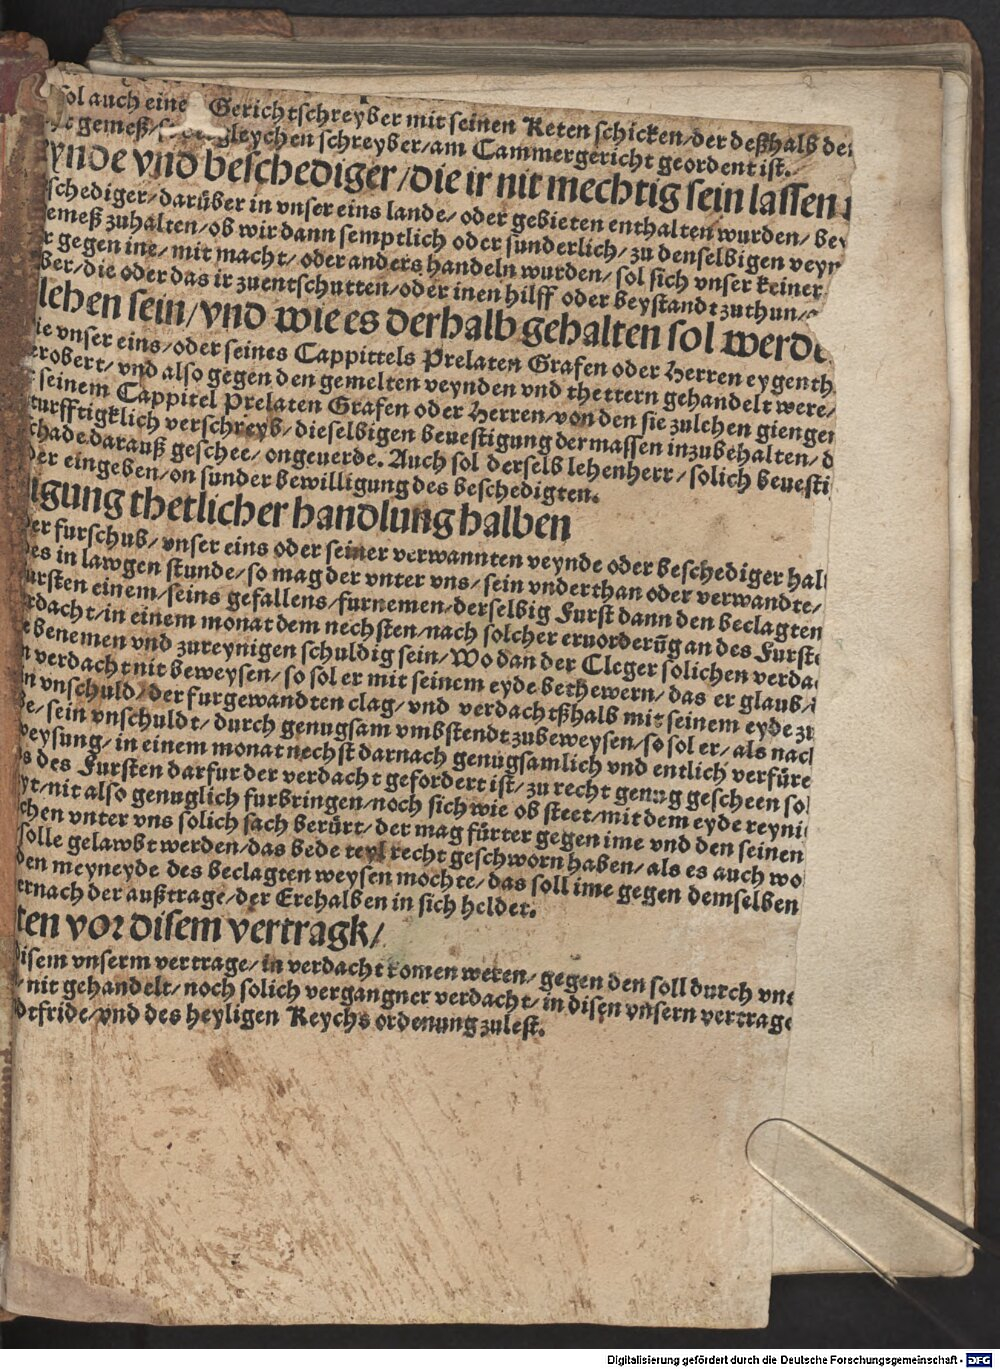 sol auch eine Gerichtschreyber mit seinen Reten schicken/der deßhalb de
gemeß/ gleychen schreyber/am Cammergericht geordent ist.
ynde vnd beschediger/die ir nit mechtig sein lassen
schediger/darüber in vnser eins lande/ oder gebieten enthalten wurden/ bey
emeß zuhalten/ob wir dann semptlich oder sunderlich/zu denselbigen veyn
r gegen ine/mit macht/oder anders handeln wurden/ sol sich vnser keiner
ber/die oder das ir zuentschutten/oder inen hilff oder beystandt zuthun/
lehen sein/vnd wie es derhalb gehalten sol werde
ie vnser eins/oder seines Cappittels Prelaten Grafen oder Herren eygenth
erobert/vnd also gegen den gemelten veynden vnd thettern gehandelt were/
seinem Cappitel Prelaten Grafen oder Herren/von den sie zulehen gienger
turfftigklich verschreyb/dieselbigen beuestigung dermassen inzubehalten/d
chade darauß geschee/ongeuerde. Auch sol derselb lehenherr/solich beuesti
der eingeben/on sunder bewilligung des beschedigten.
igung thetlicher handlung halben
der furschub/vnser eins oder seiner verwannten veynde oder beschediger hal
des in lawgen stunde/so mag der vnter vns/sein vnderthan oder verwandte/
ursten einem/seins gefallens/furnemen/derselbig Furst dann den beclagten
rdacht/in einem monat dem nechsten/nach solcher eruorderūg an des Furste
e benemen vnd zureynigen schuldig sein/Wo dan der Cleger solichen verda
n verdacht nit beweysen/so sol er mit seinem eyde bethewern/das er glaub/
n vnschuld/der furgewandten clag/vnd verdachtßhalb mit seinem eyde zu
e/sein vnschuldt/durch genugsam vmbstendt zubeweysen/so sol er/als nach
beysung/in einem monat nechst darnach genugsamlich vnd entlich verfüre
s des Fursten darfur der verdacht gefordert ist/zu recht genug gescheen so
yt/nit also genuglich furbringen/noch sich wie ob steet/mit dem eyde reyni
chen vnter vns solich sach berürt/der mag fürter gegen ime vnd den seinen
solle gelawbt werden/das bede teyl recht geschworn haben/als es auch wo
den meyneyde des beclagten weysen mochte/das soll ime gegen demselben
ernach der außtrage/der Erehalben in sich heldet.
ten vor disem vertragk/
disem vnserm vertrage/in verdacht komen weren/gegen den soll durch vns
nit gehandelt/noch solich vergangner verdacht/in disen vnsern vertrage
dtfride/vnd des heyligen Reychs ordenung zulest.
Digitalisierung gefördert durch die Deutsche Forschungsgemeinschaft - DFG